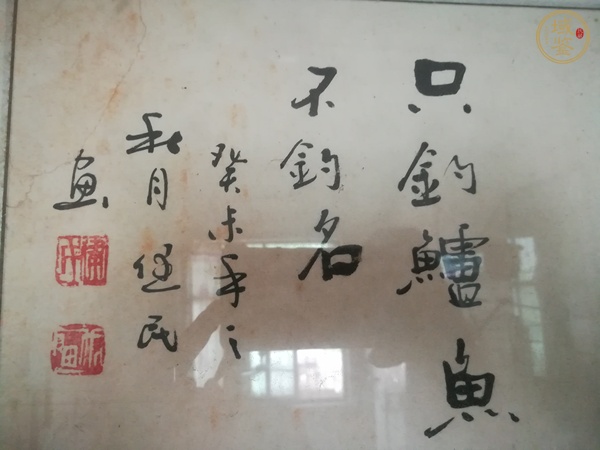 只釣鱸魚
不釣名
癸未年之
秋月健民
画